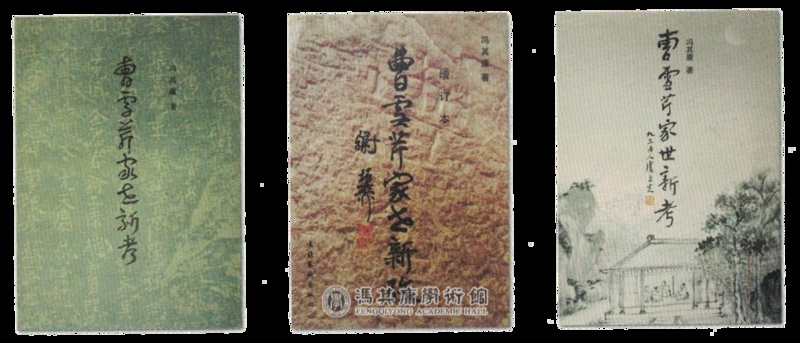 冯其庸 著
曹雪芹家世新考
冯其庸 著
增订本
曹雪芹家世新
馮其庸學術館
FENGQIYONG ACADEMIC HALL
冯其庸 著
曹雪芹家世新考